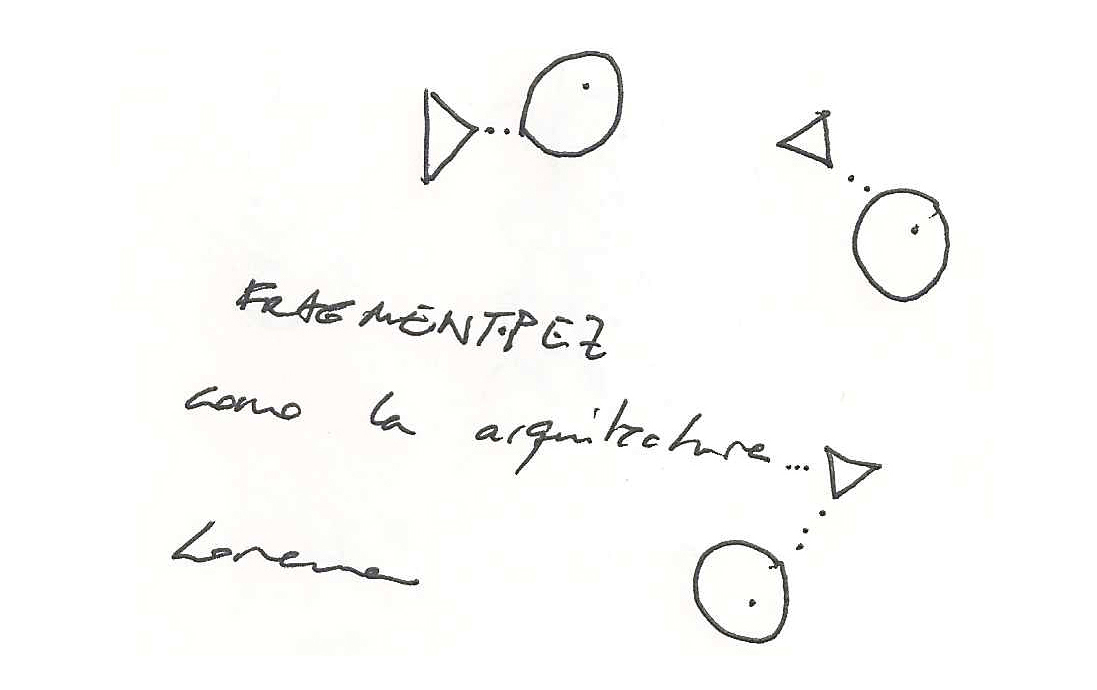 FRAGMENT.PEZ
como la arquitectura...
Lorena